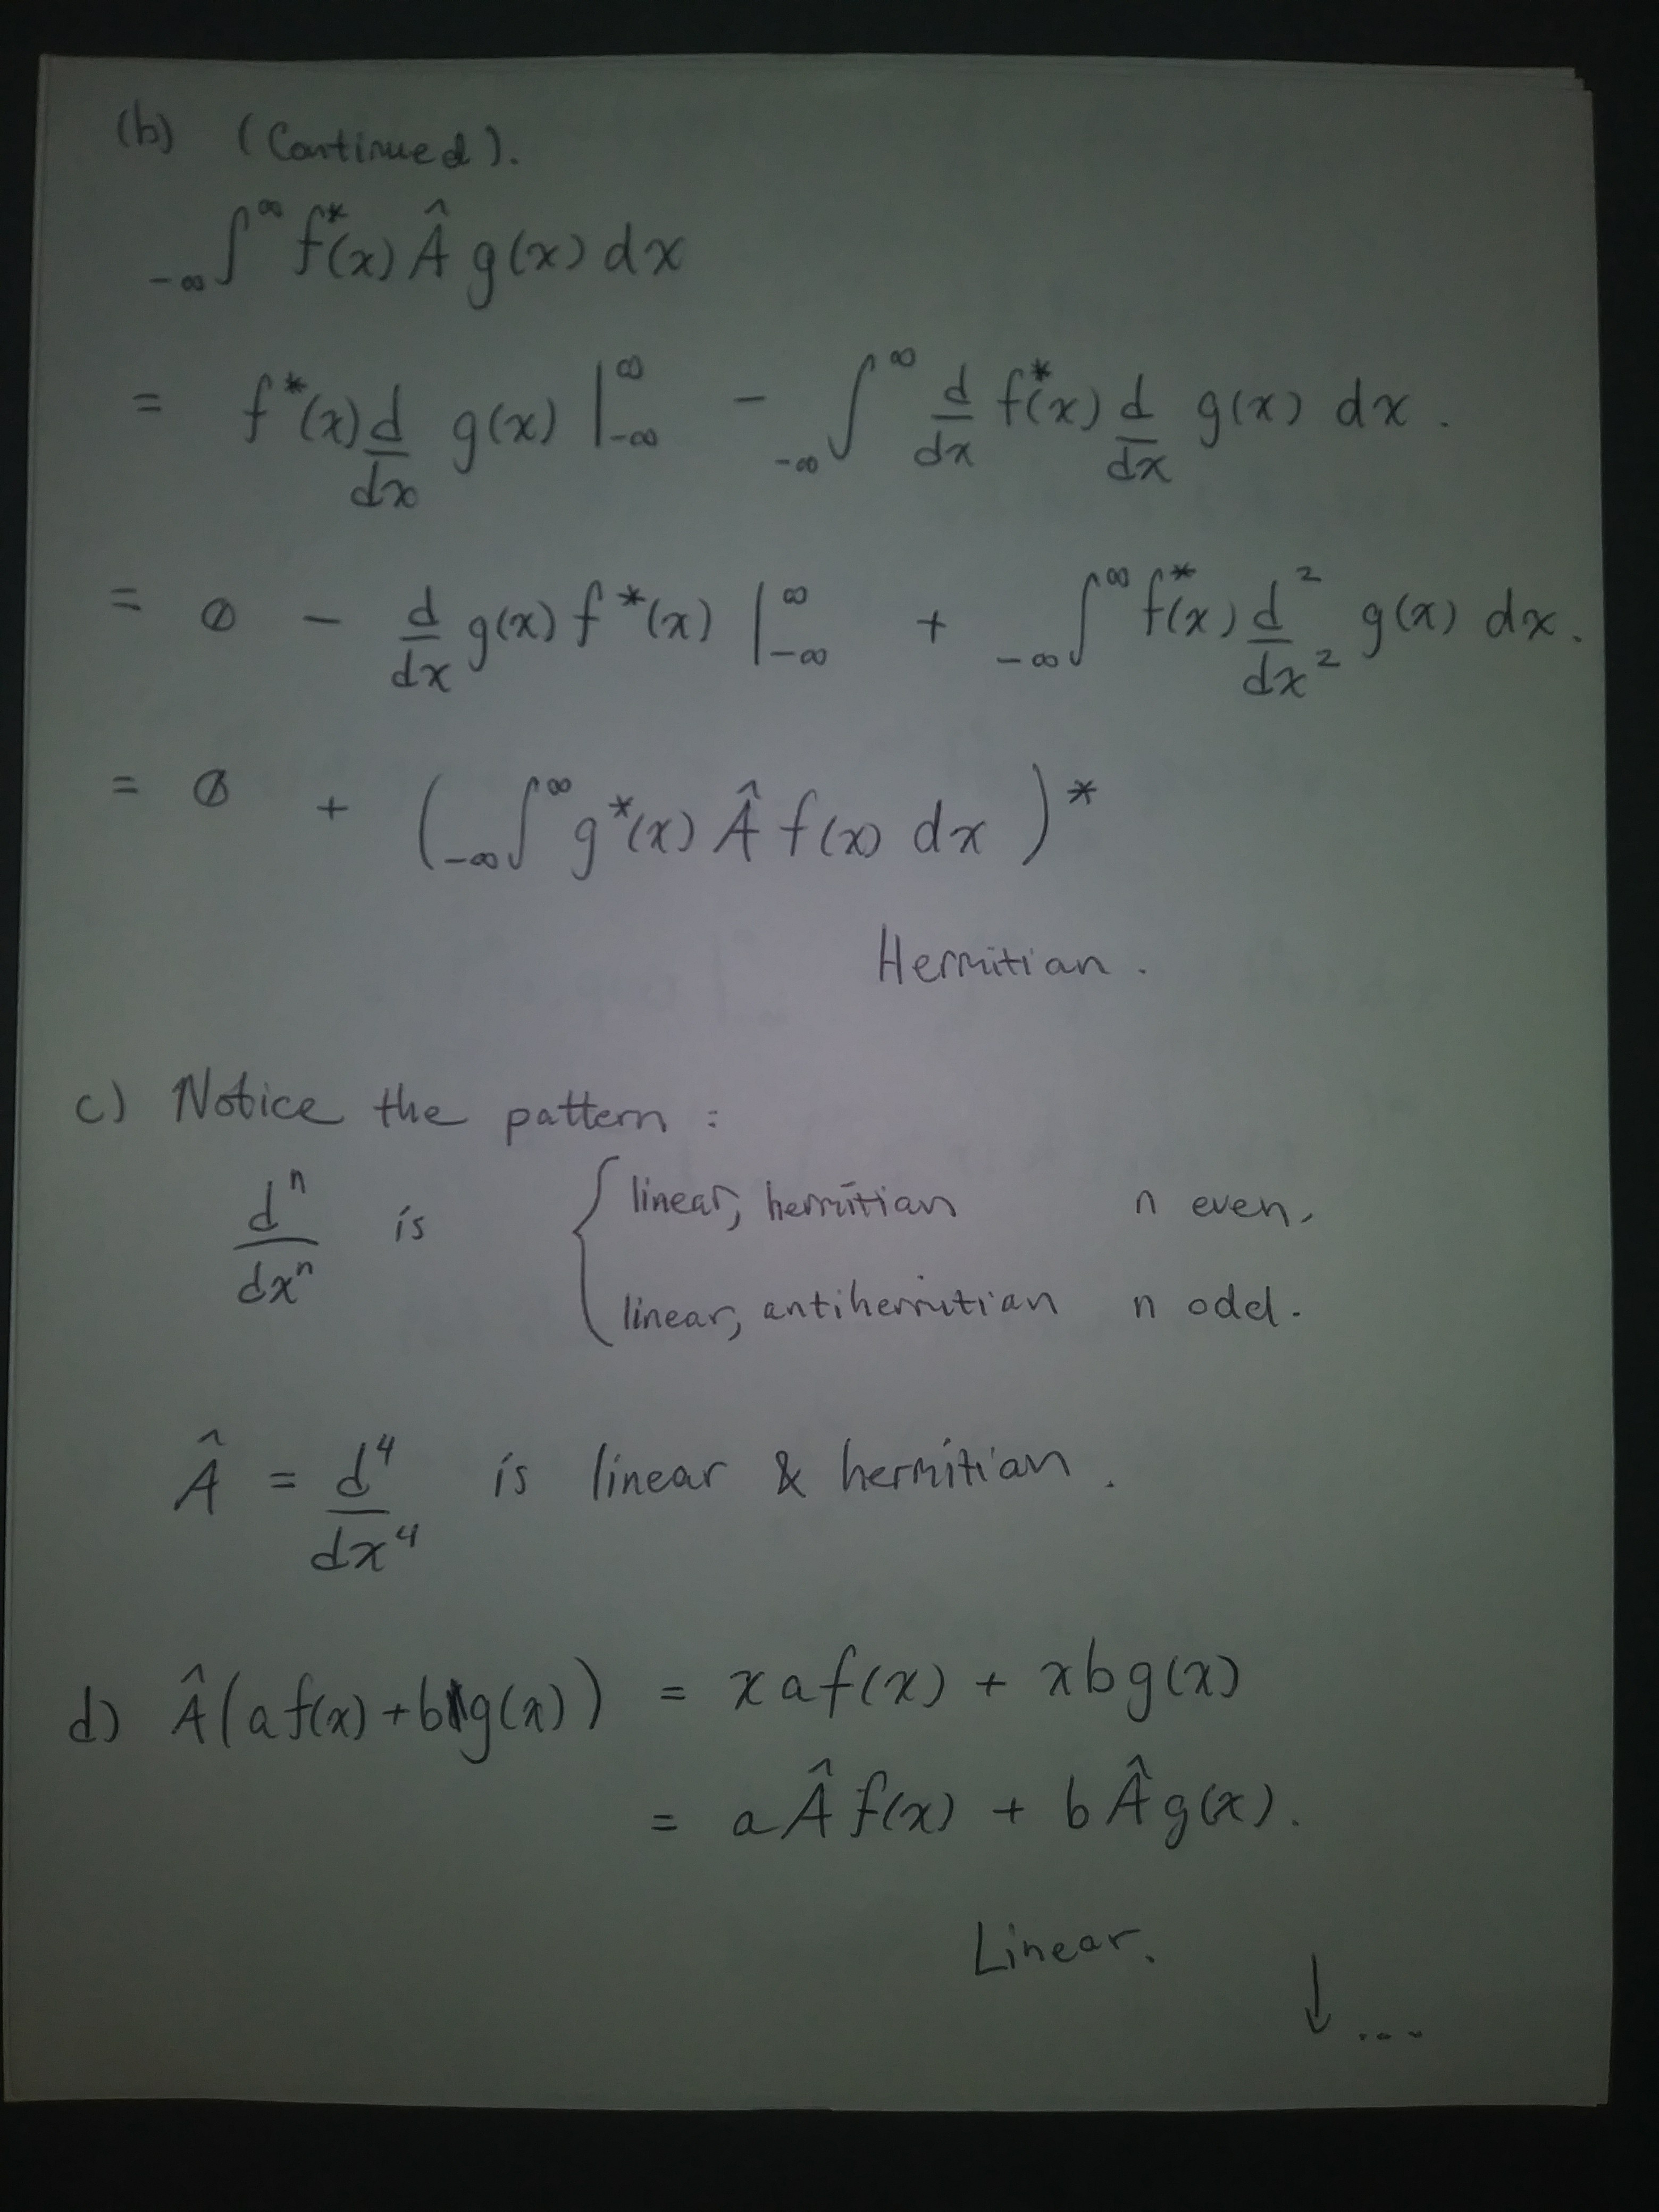 (b) (Continued).
₋∞∫^∞ f*(x) Â g(x) dx
= f*(x) d/dx g(x) |₋∞^∞ - ₋∞∫^∞ d/dx f*(x) d/dx g(x) dx.
= 0 - d/dx g(x) f*(x) |₋∞^∞ + ₋∞∫^∞ f*(x) d²/dx² g(x) dx.
= 0 + (₋∞∫^∞ g*(x) Â f(x) dx)*
Hermitian.
c) Notice the pattern:
dⁿ/dxⁿ is { linear, hermitian n even,
linear, antihermitian n odd.
Â = d⁴/dx⁴ is linear & hermitian.
d) Â(af(x)+bg(x)) = xaf(x) + xbg(x)
= aÂf(x) + bÂg(x).
Linear.
↓ ....